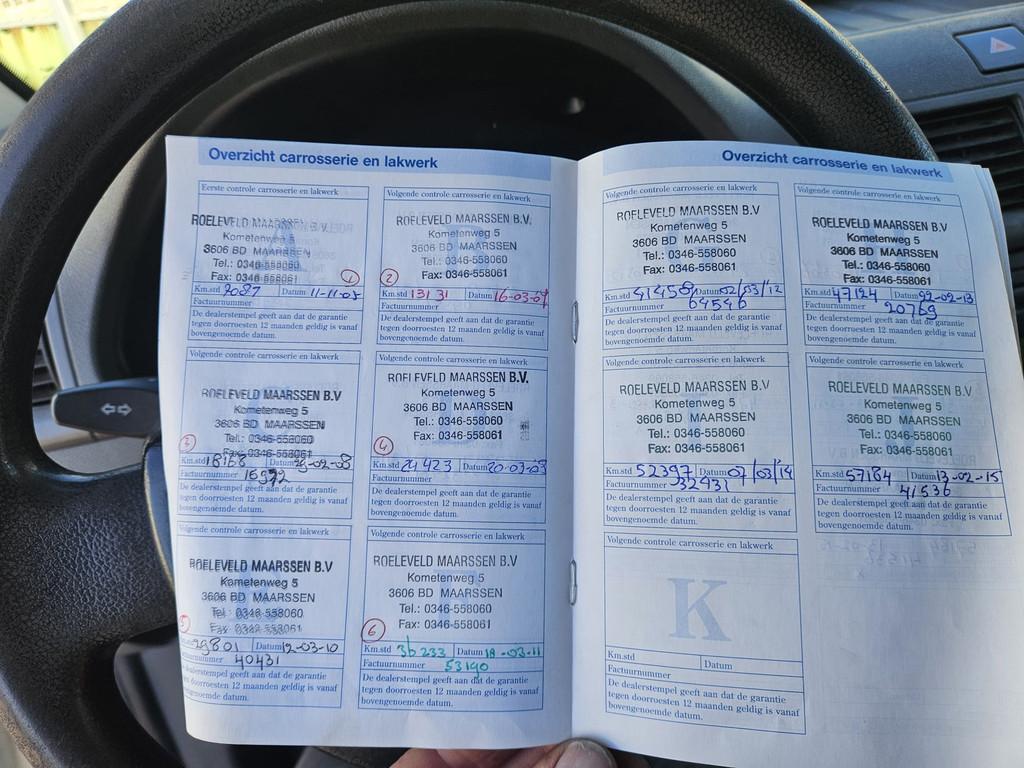 Overzicht carrosserie en lakwerk
Eerste controle carrosserie en lakwerk
ROELEVELD MAARSSEN B.V
Kometenweg 5
3606 BD MAARSSEN
Tel.: 0346-558060
Fax: 0346-558061
1
Km.std 9087 Datum 11-11-05
Factuurnummer
De dealerstempel geeft aan dat de garantie
tegen doorroesten 12 maanden geldig is vanaf
bovengenoemde datum.
Volgende controle carrosserie en lakwerk
ROELEVELD MAARSSEN B.V.
Kometenweg 5
3606 BD MAARSSEN
Tel.: 0346-558060
Fax: 0346-558061
2
Km.std 13131 Datum 16-03-07
Factuurnummer
De dealerstempel geeft aan dat de garantie
tegen doorroesten 12 maanden geldig is vanaf
bovengenoemde datum.
Volgende controle carrosserie en lakwerk
ROELEVELD MAARSSEN B.V
Kometenweg 5
3606 BD MAARSSEN
Tel.: 0346-558060
Fax: 0346-558061
3
Km.std 18168 Datum 29-02-08
Factuurnummer 16592
De dealerstempel geeft aan dat de garantie
tegen doorroesten 12 maanden geldig is vanaf
bovengenoemde datum.
Volgende controle carrosserie en lakwerk
ROELEVELD MAARSSEN B.V.
Kometenweg 5
3606 BD MAARSSEN
Tel.: 0346-558060
Fax: 0346-558061
4
Km.std 24423 Datum 20-03-09
Factuurnummer
De dealerstempel geeft aan dat de garantie
tegen doorroesten 12 maanden geldig is vanaf
bovengenoemde datum.
Volgende controle carrosserie en lakwerk
ROELEVELD MAARSSEN B.V
Kometenweg 5
3606 BD MAARSSEN
Tel.: 0346-558060
Fax: 0346-558061
5
29801 Datum 12-03-10
nummer 40431
dealerstempel geeft aan dat de garantie
tegen doorroesten 12 maanden geldig is vanaf
bovengenoemde datum.
Volgende controle carrosserie en lakwerk
ROELEVELD MAARSSEN B.V
Kometenweg 5
3606 BD MAARSSEN
Tel.: 0346-558060
Fax: 0346-558061
6
Km.std 36233 Datum 18-03-11
Factuurnummer 53190
De dealerstempel geeft aan dat de garantie
tegen doorroesten 12 maanden geldig is vanaf
bovengenoemde datum.
Overzicht carrosserie en lakwerk
Volgende controle carrosserie en lakwerk
ROELEVELD MAARSSEN B.V
Kometenweg 5
3606 BD MAARSSEN
Tel.: 0346-558060
Fax: 0346-558061
Km.std 41456 Datum 02/03/12
Factuurnummer 64546
De dealerstempel geeft aan dat de garantie
tegen doorroesten 12 maanden geldig is vanaf
bovengenoemde datum.
Volgende controle carrosserie en lakwerk
ROELEVELD MAARSSEN B.V
Kometenweg 5
3606 BD MAARSSEN
Tel.: 0346-558060
Fax: 0346-558061
Km.std 47124 Datum 22-02-13
Factuurnummer 20769
De dealerstempel geeft aan dat de garantie
tegen doorroesten 12 maanden geldig is vanaf
bovengenoemde datum.
Volgende controle carrosserie en lakwerk
ROELEVELD MAARSSEN B.V
Kometenweg 5
3606 BD MAARSSEN
Tel.: 0346-558060
Fax: 0346-558061
Km.std 52397 Datum 07/03/14
Factuurnummer 32431
De dealerstempel geeft aan dat de garantie
tegen doorroesten 12 maanden geldig is vanaf
bovengenoemde datum.
Volgende controle carrosserie en lakwerk
ROELEVELD MAARSSEN B.V
Kometenweg 5
3606 BD MAARSSEN
Tel.: 0346-558060
Fax: 0346-558061
Km.std 57184 Datum 13-02-15
Factuurnummer 41536
De dealerstempel geeft aan dat de garantie
tegen doorroesten 12 maanden geldig is vanaf
bovengenoemde datum.
Volgende controle carrosserie en lakwerk
K
Km.std Datum
Factuurnummer
De dealerstempel geeft aan dat de garantie
tegen doorroesten 12 maanden geldig is vanaf
bovengenoemde datum.